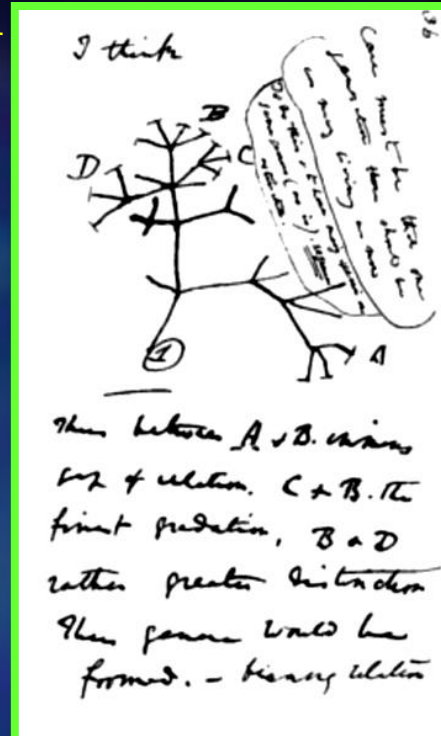 36
I think
Case must be that one
generation then should be
as many living as now
To do this & to have many species in
same genus (as is). requires
extinction.
B
D
C
1
A
Thus between A & B. immens
gap of relation. C & B. the
finest gradation, B & D
rather greater distinction
Thus genera would be
formed. — bienary relation